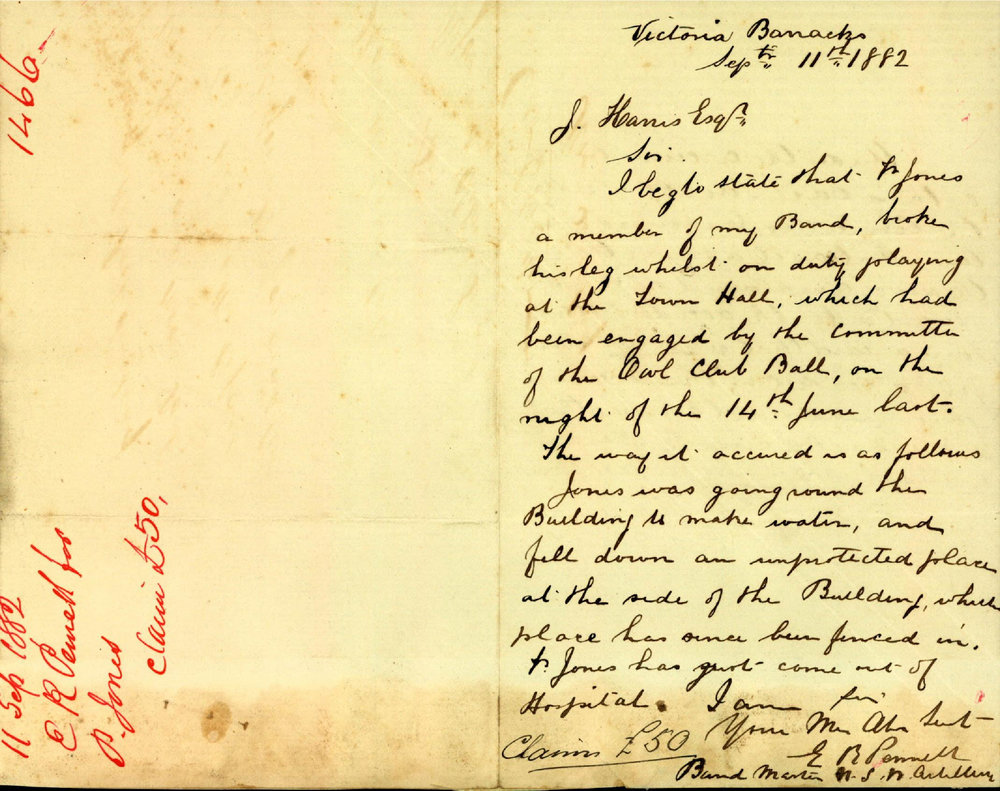 1466
11 Sep 1882
E R Pennell for
P. Jones
Claim £50,
Victoria Barracks
Septr 11th 1882
J. Harris Esqr
Sir.
I beg to state that Jones
a member of my Band, broke
his leg whilst on duty playing
at the Town Hall, which had
been engaged by the Committe
of the Owl Club Ball, on the
night of the 14th June last.
The way it accured is as follows
Jones was going round the
Building to make water, and
fell down an unprotected place
at the side of the Building, which
place has since been fenced in.
Jones has just come out of
Hospital. I am Sir
Your Mo Obn Sert
Claims £50
E R Pennell
Band Master N. S. W. Artillery